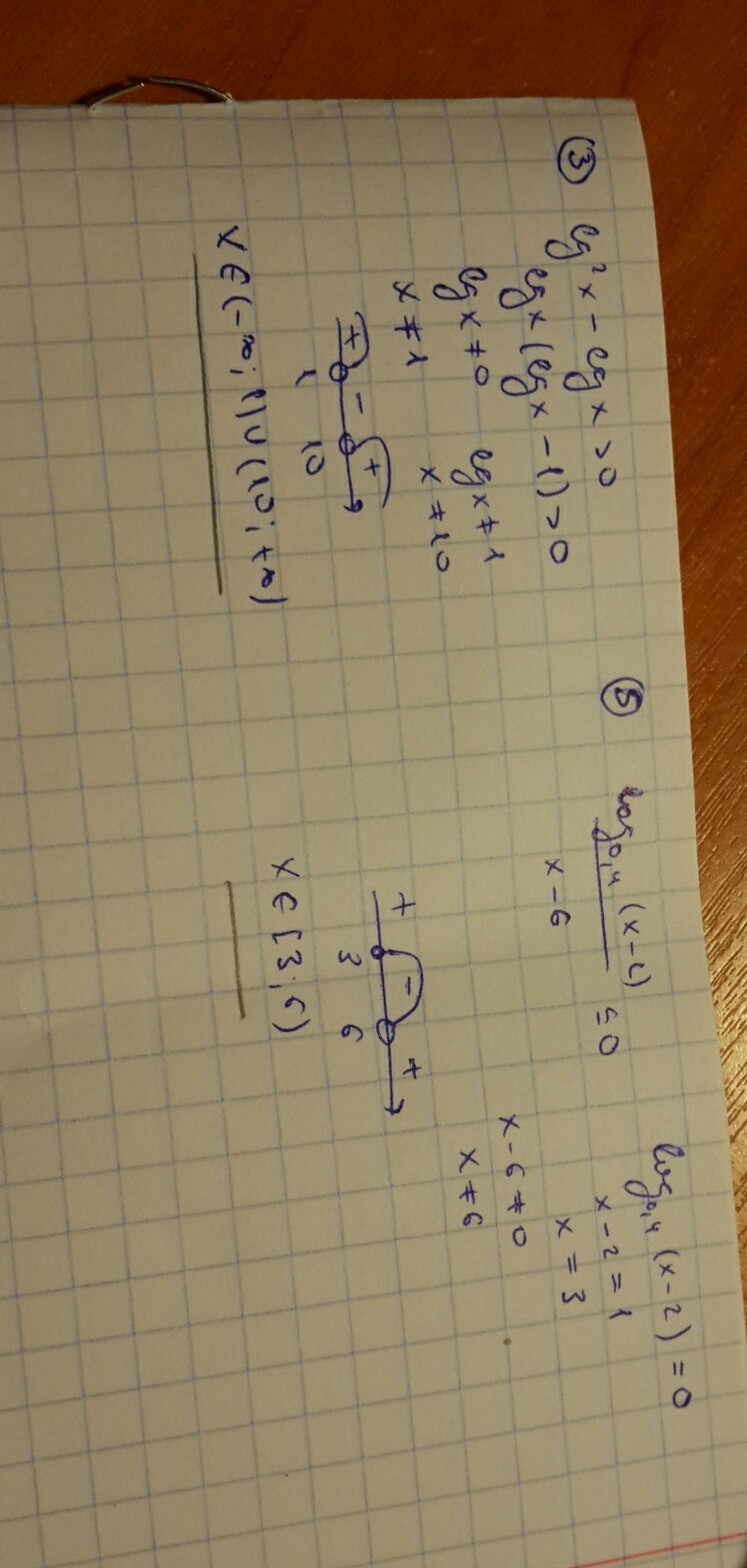 ③ lg² x - lg x > 0
lg x (lg x - 1) > 0
lg x ≠ 0 lg x ≠ 1
x ≠ 1 x ≠ 10
+ - +
1 10
x ∈ (-∞; 1) ∪ (10; +∞)
⑤ log₀,₄ (x-2)
x - 6
≤ 0
+ - +
3 6
x ∈ [3; 6)
log₀,₄ (x-2) = 0
x - 2 = 1
x = 3
x - 6 ≠ 0
x ≠ 6